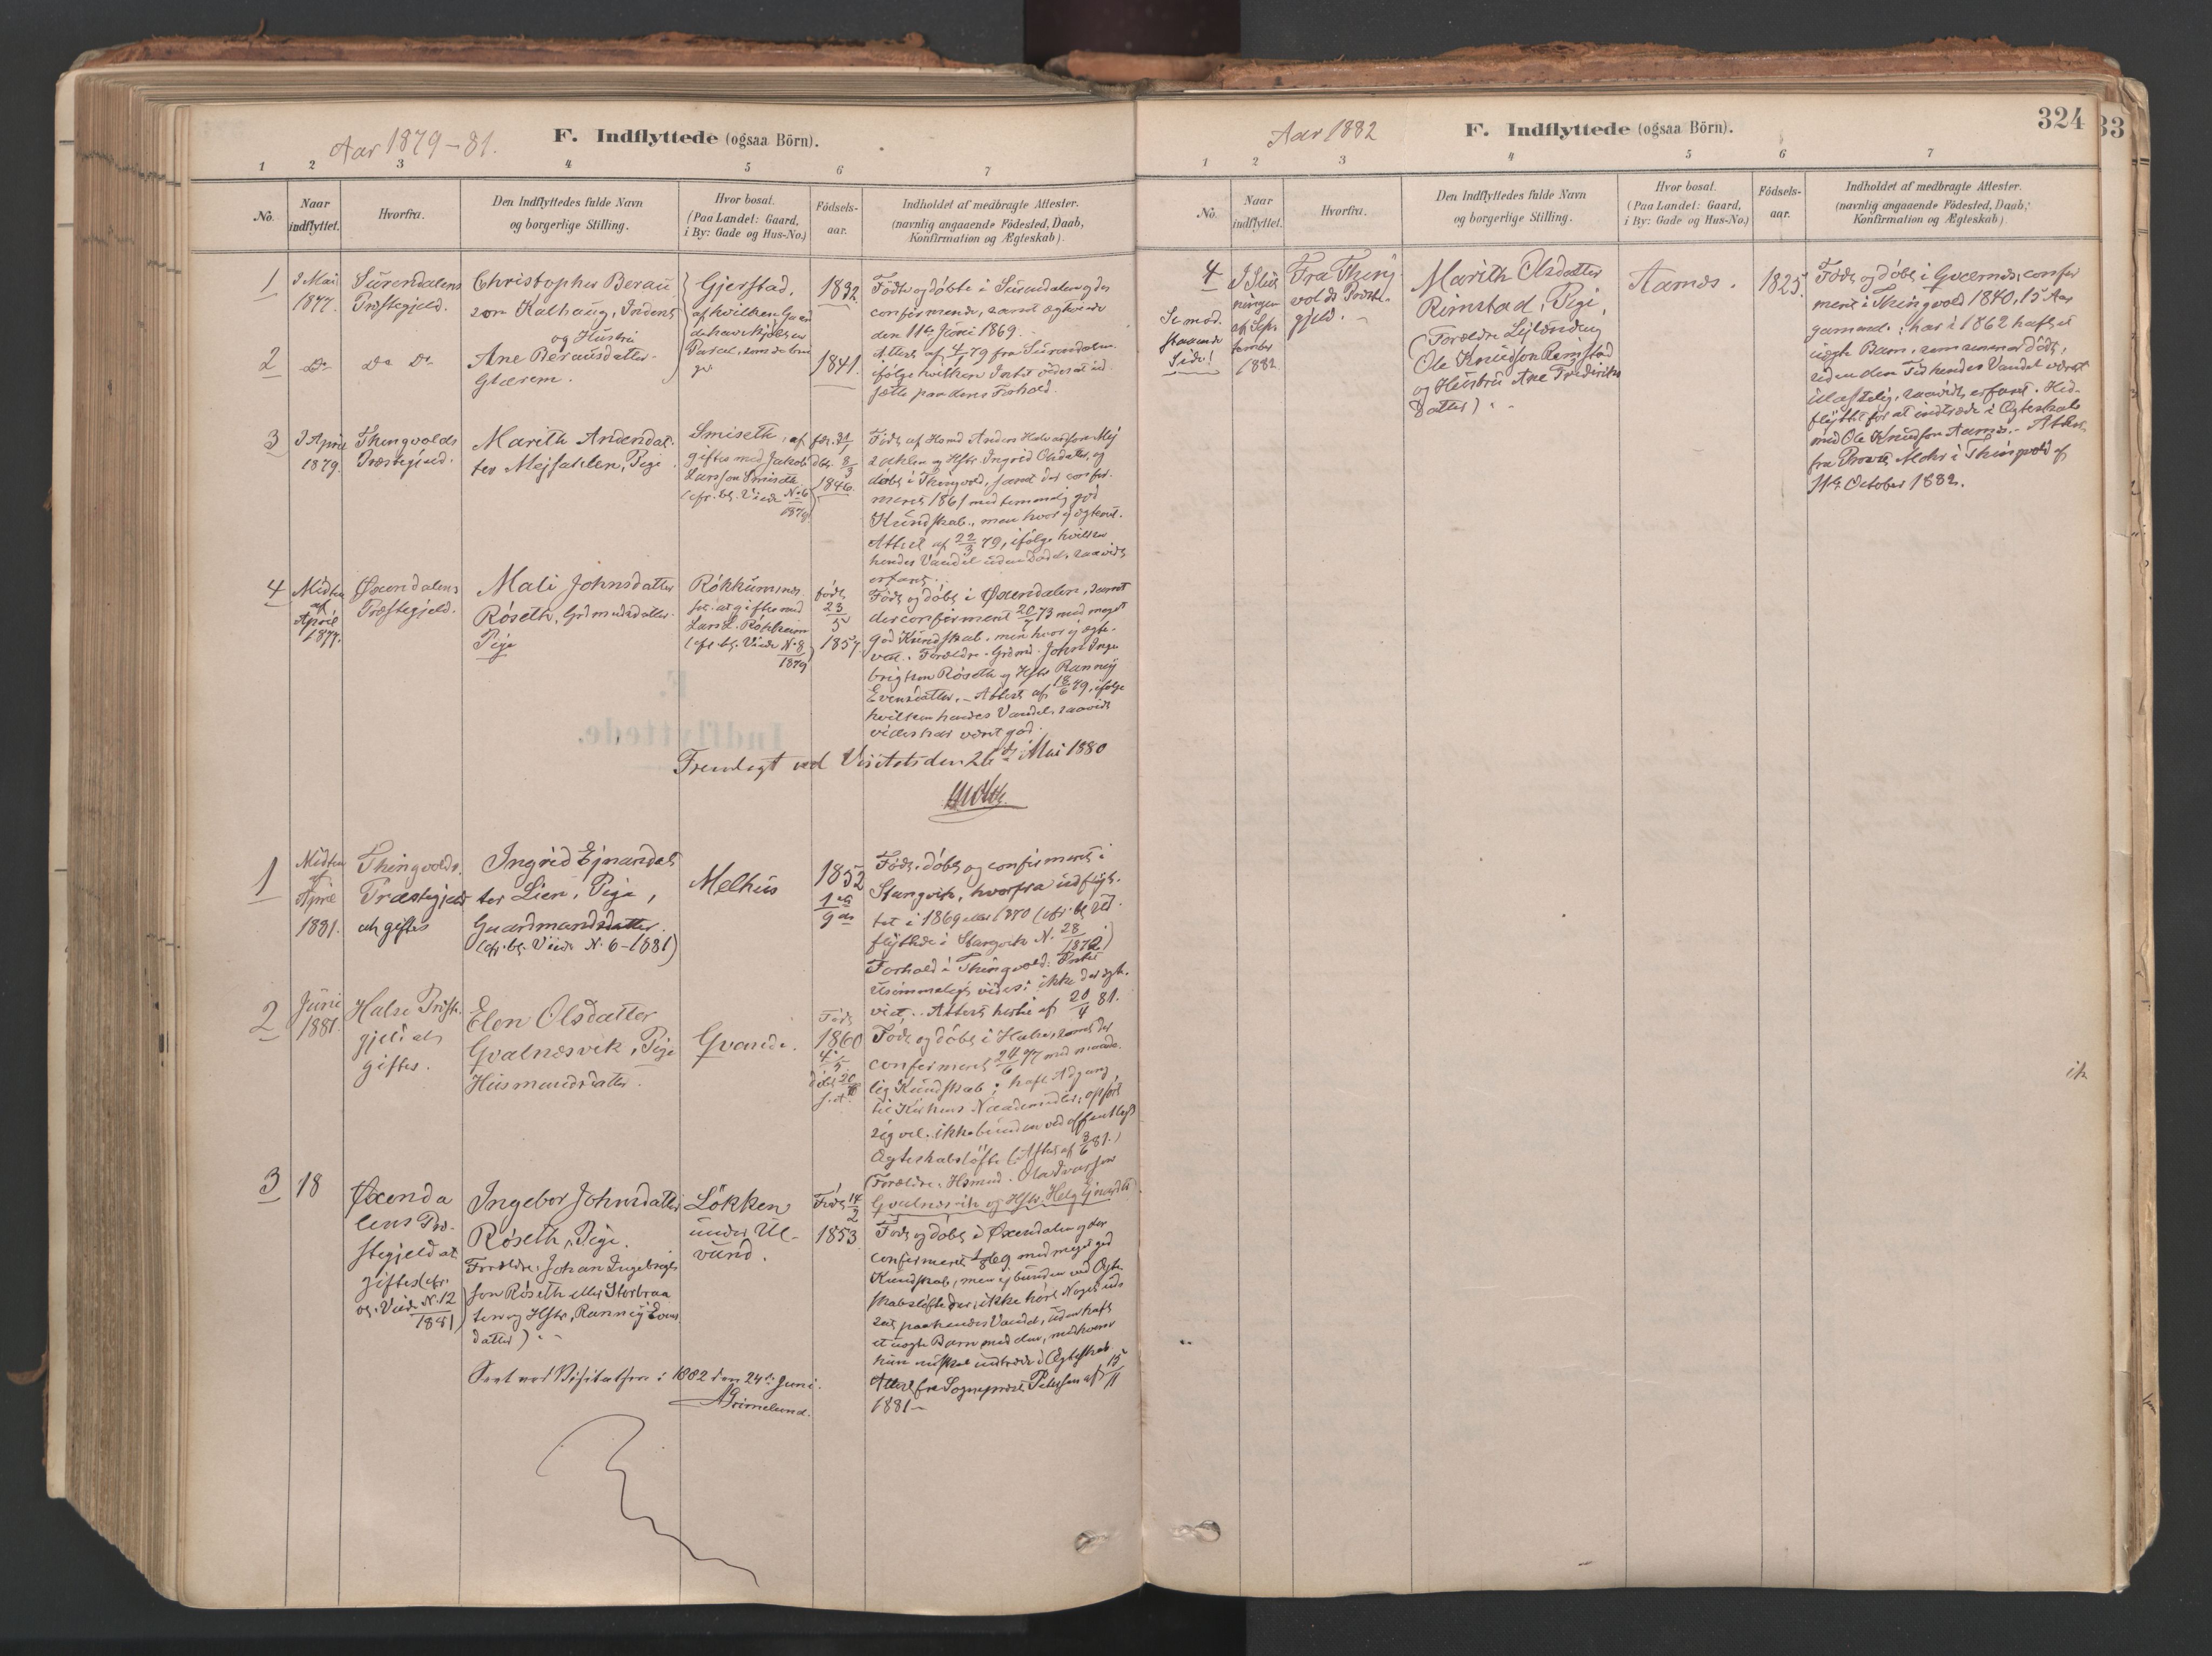 Aar 1879-81.
F. Indflyttede (ogsaa Börn).
1 2 3 4 5 6 7
No.
Naar indflyttet.
Hvorfra.
Den Indflyttedes fulde Navn og borgerlige Stilling.
Hvor bosat. (Paa Landet: Gaard, i By: Gade og Hus-No.)
Födsels-aar.
Indholdet af medbragte Attester. (navnlig angaaende Födested, Daab, Konfirmation og Ægteskab).
1
I Mai
1877.
Surendalens
Præstegjeld.
Christopher Berau
son Kalhaug, Inderst
og Hustru
Gjerstad,
af hvilken Gaard
Parcel, som de
1832.
Födt og döbt i Surendalen og der
confirmerede, samt ægteviede
den 11te Juni 1869.
Attest af 4/1 79 fra Surendalen
ifölge hvilken Intet er at ud
sætte paa deres Forhold.
2
Do
Do Do
Ane Berausdatter
Glærem.
1841.
3
I April
1879.
Thingvolds
Præstegjeld.
Marith Andersdat
ter Mejsahlen, Pige
Smiseth, af
giftes med Jakob
Larsson Smiseth
(cfr. bl. Viede N. 6
1879)
för. 31/1
döbt 8/3
1846.
Födt af Hsmd Anders Halvorsson Mej
sahlen og Hstr. Ingrid Olsdatter, og
döbt i Thingvold, samt der confir.
meret 1861 med temmelig god
Kundskab, men hvor ej ægtevit.
Attest af 22/3 79, ifölge hvilken
hendes Vandel uden Dadel, saavidt
erfaret.
4
Midten
af
April
1877.
Öxendalens
Præstegjeld.
Mali Johnsdatter
Röseth, Grdmandsdatter.
Pige
Rökkumnes
for at giftes med
Lars L. Rökkum
(cfr. bl. Viede N. 8
1879)
född
23
5
1857.
Födt og döbt i Öxendalen, samt
der confirmeret 20/7 73 med meget
god Kundskab, men hvor ej ægte-
viet. Forældre: Grdmd. John Inge
brigtson Röseth og Hstr Rannej
Evensdatter. - Attest af 18/6 79, ifölge
hvilken hendes Vandel, saavidt
vides har været god.
Fremlagt ved Visitats den 26de Mai 1880
1
Midten
af
April
1881.
Thingvolds
Præstegjeld
at giftes
Ingrid Ejnarsdat
ter Lien, Pige,
Gaardmandsdatter.
(cfr. bl. Viede N. 6-1881)
Melhus
1852
1ste
9de
Födt, döbt og confirmeret i
Stangvik, hvorfra udflyt-
tet i 1869 eller 1870 (cfr. bl. Ud
flyttede i Stangvik N. 28
1870)
Forhold i Thingvold:
vides; ikke der ægte.
viet. Attest herfra af 20/4 81.
2
Juni
1881.
Halse Præste
gjeld at
giftes.
Elen Olsdatter
Gvalnesvik, Pige
Husmandsdatter.
Gvande.
Född
1860
4
5
Födt og döbt i Halse, samt der
confirmeret 24/6 77 med maade
lig Kundskab; haft Adgang
til Kirkens Naademidler; opfört
sig vel. ikke bunden ved offentligt
Ægteskabslöfte (Attest af 3/6 81.)
(Forældre: Hsmnd. Ola Ivarsson
Gvalnesvik og Hstr. Helg Ejnarsdtr)
3
18
Öxenda
lens Præ-
stegjeld at
giftes (cfr.
bl. Viede N. 12
1881)
Ingebor Johnsdatter
Röseth, Pige.
Forældre: Johan Ingebrigt
son Röseth eller Storbraa
ten og Hstr. Rannej Evens
datter)
Lökken
under Ul-
vund.
Född 14/2
1853
Födt og döbt i Öxendalen og der
confirmeret 1869 med meget god
Kundskab, men ej bunden ved Ægte-
skabslöfte der; ikke hört Noget ud
sat paa hendes Vandel, uden haft
et uægte Barn med den, med hvem
hun nu skal indtræde i Ægteskab
Attest fra Sognepræst Petersen af 15/11
1881-
Seet ved Visitatsen i 1882 den 24de Juni.
AGrimelund.
Aar 1882
F. Indflyttede (ogsaa Börn).
324
33
1 2 3 4 5 6 7
No.
Naar indflyttet.
Hvorfra.
Den Indflyttedes fulde Navn og borgerlige Stilling.
Hvor bosat. (Paa Landet: Gaard, i By: Gade og Hus-No.)
Födsels-aar.
Indholdet af medbragte Attester. (navnlig angaaende Födested, Daab, Konfirmation og Ægteskab).
4
Se mod-
staaende
Side!
I Slut
ningen
af Sep
tember
1882
Fra Thing
volds Præste
gjeld.
Marith Olsdatter
Rimstad, Pige,
(Forældre Lejlending
Ole Knudson Rimstad
og Hustru Ane Frederiks
datter)
Aarnes.
1825.
Födt og döbt i Qværnes, confir
meret i Thingvold 1840, 15 Aar
gammel; har i 1862 haft et
uægte Barn, som senere er dödt;
siden den Tid hendes Vandel været
ulastelig, saavidt erfaret. Hid-
flyttet for at indtræde i Ægteskab
med Ole Knudson Aarnes. - Attest
fra Provst Mohr i Thingvold af
11te October 1882.
ik